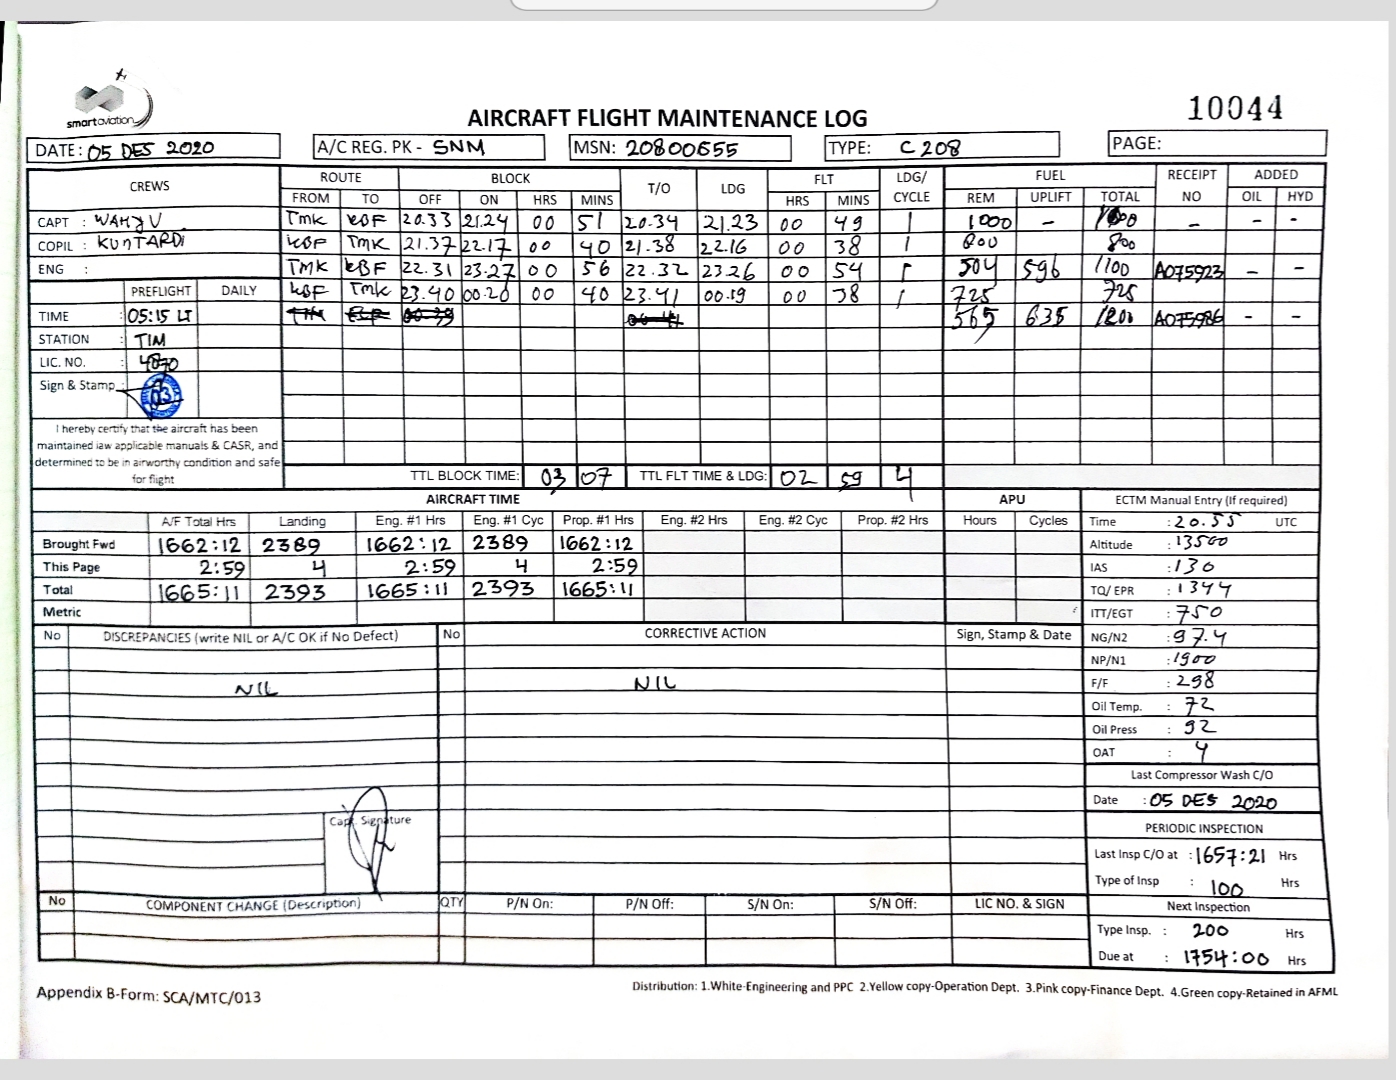 smartaviation
AIRCRAFT FLIGHT MAINTENANCE LOG
10044
DATE: 05 DES 2020 A/C REG. PK - SNM MSN: 20800655 TYPE: C208 PAGE:
CREWS ROUTE BLOCK T/O LDG FLT LDG/ CYCLE FUEL RECEIPT NO ADDED
FROM TO OFF ON HRS MINS HRS MINS REM UPLIFT TOTAL OIL HYD
CAPT : WAHYU TMK KBF 20.33 21.24 00 51 20.34 21.23 00 49 1 1000 - - - -
COPIL : KUNTARDI KBF TMK 21.37 22.17 00 40 21.38 22.16 00 38 1 800 800
ENG : TMK KBF 22.31 23.27 00 56 22.32 23.26 00 54 1 504 596 1100 A075923 - -
PREFLIGHT DAILY KBF TMK 23.40 00.20 00 40 23.41 00.19 00 38 1 725 725
TIME : 05:15 LT 565 635 1200 A075986 - -
STATION : TIM
LIC. NO. : 4870
Sign & Stamp :
I hereby certify that the aircraft has been
maintained iaw applicable manuals & CASR, and
determined to be in airworthy condition and safe
for flight
TTL BLOCK TIME: 03 07 TTL FLT TIME & LDG: 02 59 4
AIRCRAFT TIME APU ECTM Manual Entry (If required)
A/F Total Hrs Landing Eng. #1 Hrs Eng. #1 Cyc Prop. #1 Hrs Eng. #2 Hrs Eng. #2 Cyc Prop. #2 Hrs Hours Cycles Time : 20.55 UTC
Brought Fwd 1662:12 2389 1662:12 2389 1662:12 Altitude : 13500
This Page 2:59 4 2:59 4 2:59 IAS : 130
Total 1665:11 2393 1665:11 2393 1665:11 TQ/ EPR : 1344
Metric ITT/EGT : 750
No DISCREPANCIES (write NIL or A/C OK if No Defect) No CORRECTIVE ACTION Sign, Stamp & Date NG/N2 : 97.4
NP/N1 : 1900
NIL NIL F/F : 298
Oil Temp. : 72
Oil Press : 92
OAT : 4
Last Compressor Wash C/O
Date : 05 DES 2020
Capt. Signature
PERIODIC INSPECTION
Last Insp C/O at : 1657:21 Hrs
Type of Insp : 100 Hrs
No COMPONENT CHANGE (Description) QTY P/N On: P/N Off: S/N On: S/N Off: LIC NO. & SIGN Next Inspection
Type Insp. : 200 Hrs
Due at : 1754:00 Hrs
Appendix B-Form: SCA/MTC/013
Distribution: 1.White-Engineering and PPC 2.Yellow copy-Operation Dept. 3.Pink copy-Finance Dept. 4.Green copy-Retained in AFML